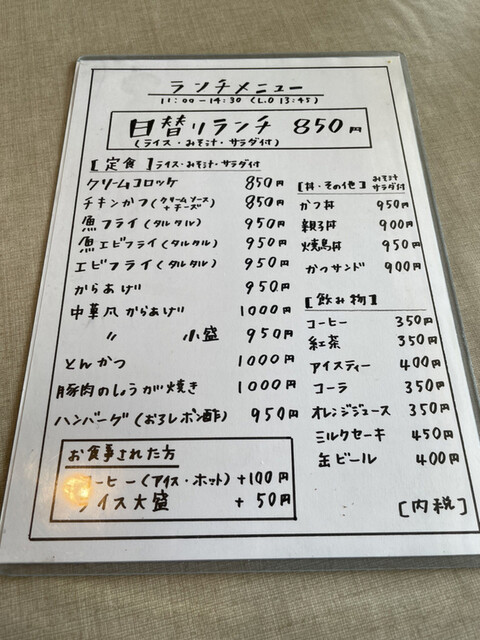 ランチメニュー
11:00-14:30 (L.O 13:45)
日替りランチ 850円
(ライス・みそ汁・サラダ付)
[定食] ライス・みそ汁・サラダ付
クリームコロッケ 850円
チキンかつ(クリームソース+チーズ) 850円
魚フライ(タルタル) 950円
魚エビフライ(タルタル) 950円
エビフライ(タルタル) 950円
からあげ 950円
中華風からあげ 1000円
〃 小盛 950円
とんかつ 1000円
豚肉のしょうが焼き 1000円
ハンバーグ(おろしポン酢) 950円
お食事された方
コーヒー(アイス・ホット) +100円
ライス大盛 +50円
[丼・その他] みそ汁サラダ付
かつ丼 950円
親子丼 900円
焼鳥丼 950円
かつサンド 900円
[飲み物]
コーヒー 350円
紅茶 350円
アイスティー 400円
コーラ 350円
オレンジジュース 350円
ミルクセーキ 450円
缶ビール 400円
[内税]